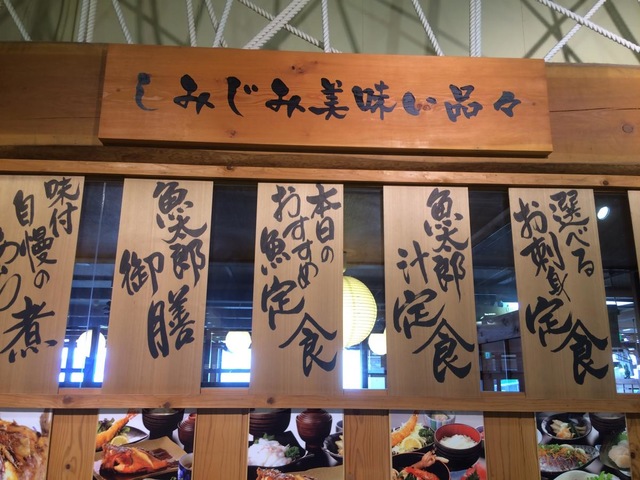 しみじみ美味い品々
選べる
お刺身定食
魚太郎
汁定食
本日の
おすすめ
魚定食
魚太郎
御膳
味付
自慢の
あら煮